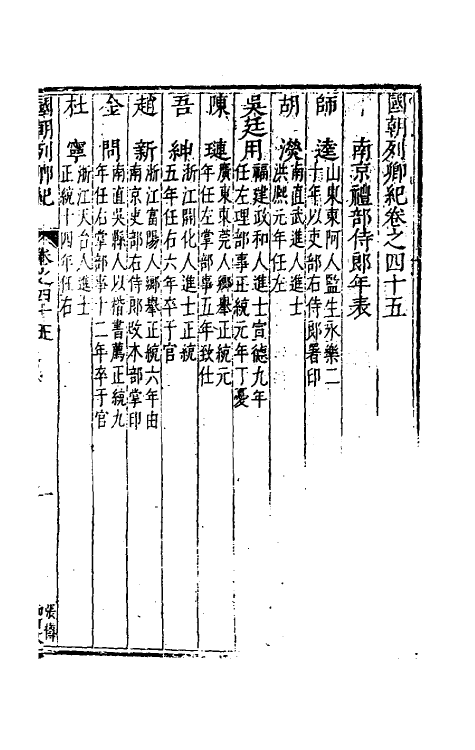 國朝列卿紀卷之四十五
南京禮部侍郎年表
師逵 山東東阿人監生永樂二
十年以吏部右侍郎署印
胡濙 南直武進人進士
洪熙元年任左
吳廷用 福建政和人進士宣德九年
任左理部事正統元年丁憂
陳璉 廣東東莞人鄉舉正統元
年任左掌部事五年致仕
吾紳 浙江開化人進士正統
五年任右六年卒于官
趙新 浙江富陽人鄉舉正統六年由
南京吏部右侍郎改本部掌印
金問 南直吳縣人以楷書薦正統九
年任右掌部事十二年卒于官
杜寧 浙江天台人進士
正統十四年任右
國朝列卿紀 卷之四十五 一